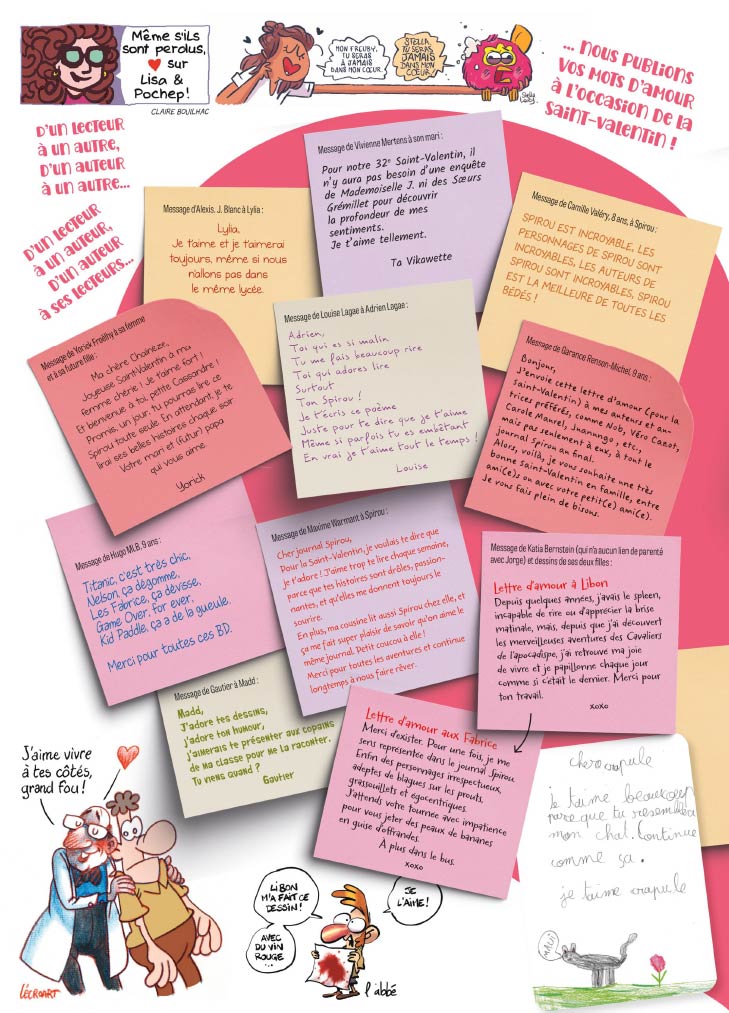 Même s'ils
sont perdus,
♥ sur
Lisa &
Pochep !
CLAIRE BOUILHAC
MON FREUBY,
TU SERAS
À JAMAIS
DANS MON CŒUR.
STELLA,
TU SERAS
JAMAIS
DANS MON
CŒUR.
... NOUS PUBLIONS
VOS MOTS D'AMOUR
À L'OCCASION DE LA
SAINT-VALENTIN !
D'UN LECTEUR
À UN AUTRE,
D'UN AUTEUR
À UN AUTRE...
D'UN LECTEUR
À UN AUTEUR,
D'UN AUTEUR
À SES LECTEURS...
Message d'Alexis. J. Blanc à Lylia :
Lylia,
Je t'aime et je t'aimerai
toujours, même si nous
n'allons pas dans
le même lycée.
Message de Vivienne Mertens à son mari :
Pour notre 32e Saint-Valentin, il
n'y aura pas besoin d'une enquête
de Mademoiselle J. ni des Sœurs
Grémillet pour découvrir
la profondeur de mes
sentiments.
Je t'aime tellement.
Ta Vikawette
Message de Camille Valéry, 8 ans, à Spirou :
SPIROU EST INCROYABLE, LES
PERSONNAGES DE SPIROU SONT
INCROYABLES, LES AUTEURS DE
SPIROU SONT INCROYABLES, SPIROU
EST LA MEILLEURE DE TOUTES LES
BÉDÉS !
Message de Yorick Froëhy à sa femme
et à sa future fille :
Ma chère Chaineze,
Joyeuse Saint-Valentin à ma
femme chérie ! Je t'aime fort !
Et bienvenue à toi, petite Cassandre !
Promis, un jour, tu pourras lire ce
Spirou toute seule. En attendant, je te
lirai ses belles histoires chaque soir
Votre mari et (futur) papa
qui vous aime.
Yorick
Message de Louise Lagae à Adrien Lagae :
Adrien,
Toi qui es si malin
Tu me fais beaucoup rire
Toi qui adores lire
Surtout
Ton Spirou !
Je t'écris ce poème
Juste pour te dire que je t'aime
Même si parfois tu es embêtant
En vrai je t'aime tout le temps !
Louise
Message de Garance Renson-Michel, 9 ans :
Bonjour,
J'envoie cette lettre d'amour (pour la
Saint-Valentin) à mes auteurs et au-
trices préférés, comme Nob, Véro Cazot,
Carole Maurel, Juanungo, etc.,
mais pas seulement à eux, à tout le
journal Spirou au final.
Alors, voilà, je vous souhaite une très
bonne saint-Valentin en famille, entre
ami(e)s ou avec votre petit(e) ami(e).
Je vous fais plein de bisous.
Message de Hugo MLB, 9 ans :
Titanic, c'est très chic,
Nelson, ça dégomme,
Les Fabrice, ça dévisse,
Game Over, for ever,
Kid Paddle, ça a de la gueule.
Merci pour toutes ces BD.
Message de Maxime Warmant à Spirou :
Cher journal Spirou,
Pour la Saint-Valentin, je voulais te dire que
je t'adore ! J'aime trop te lire chaque semaine,
parce que tes histoires sont drôles, passion-
nantes, et qu'elles me donnent toujours le
sourire.
En plus, ma cousine lit aussi Spirou chez elle, et
ça me fait super plaisir de savoir qu'on aime le
même journal. Petit coucou à elle !
Merci pour toutes les aventures et continue
longtemps à nous faire rêver.
Message de Katia Bernstein (qui n'a aucun lien de parenté
avec Jorge) et dessins de ses deux filles :
Lettre d'amour à Libon
Depuis quelques années, j'avais le spleen,
incapable de rire ou d'apprécier la brise
matinale, mais, depuis que j'ai découvert
les merveilleuses aventures des Cavaliers
de l'apocadispe, j'ai retrouvé ma joie
de vivre et je papillonne chaque jour
comme si c'était le dernier. Merci pour
ton travail.
xoxo
Message de Gautier à Madd :
Madd,
J'adore tes dessins,
j'adore ton humour,
j'aimerais te présenter aux copains
de ma classe pour me la raconter.
Tu viens quand ?
Gautier
Lettre d'amour aux Fabrice
Merci d'exister. Pour une fois, je me
sens représentée dans le journal Spirou.
Enfin des personnages irrespectueux,
adeptes de blagues sur les prouts,
grassouillets et égocentriques.
J'attends votre tournée avec impatience
pour vous jeter des peaux de bananes
en guise d'offrandes.
À plus dans le bus.
xoxo
J'aime vivre
à tes côtés,
grand fou !
L'ÉCROART
LIBON
M'A FAIT CE
DESSIN !
AVEC
DU VIN
ROUGE
...
JE
L'AIME !
l'abbé
cher crapule
je t'aime beaucoup
parce que tu resembles a
mon chat. Continue
comme sa.
je t'aime crapule